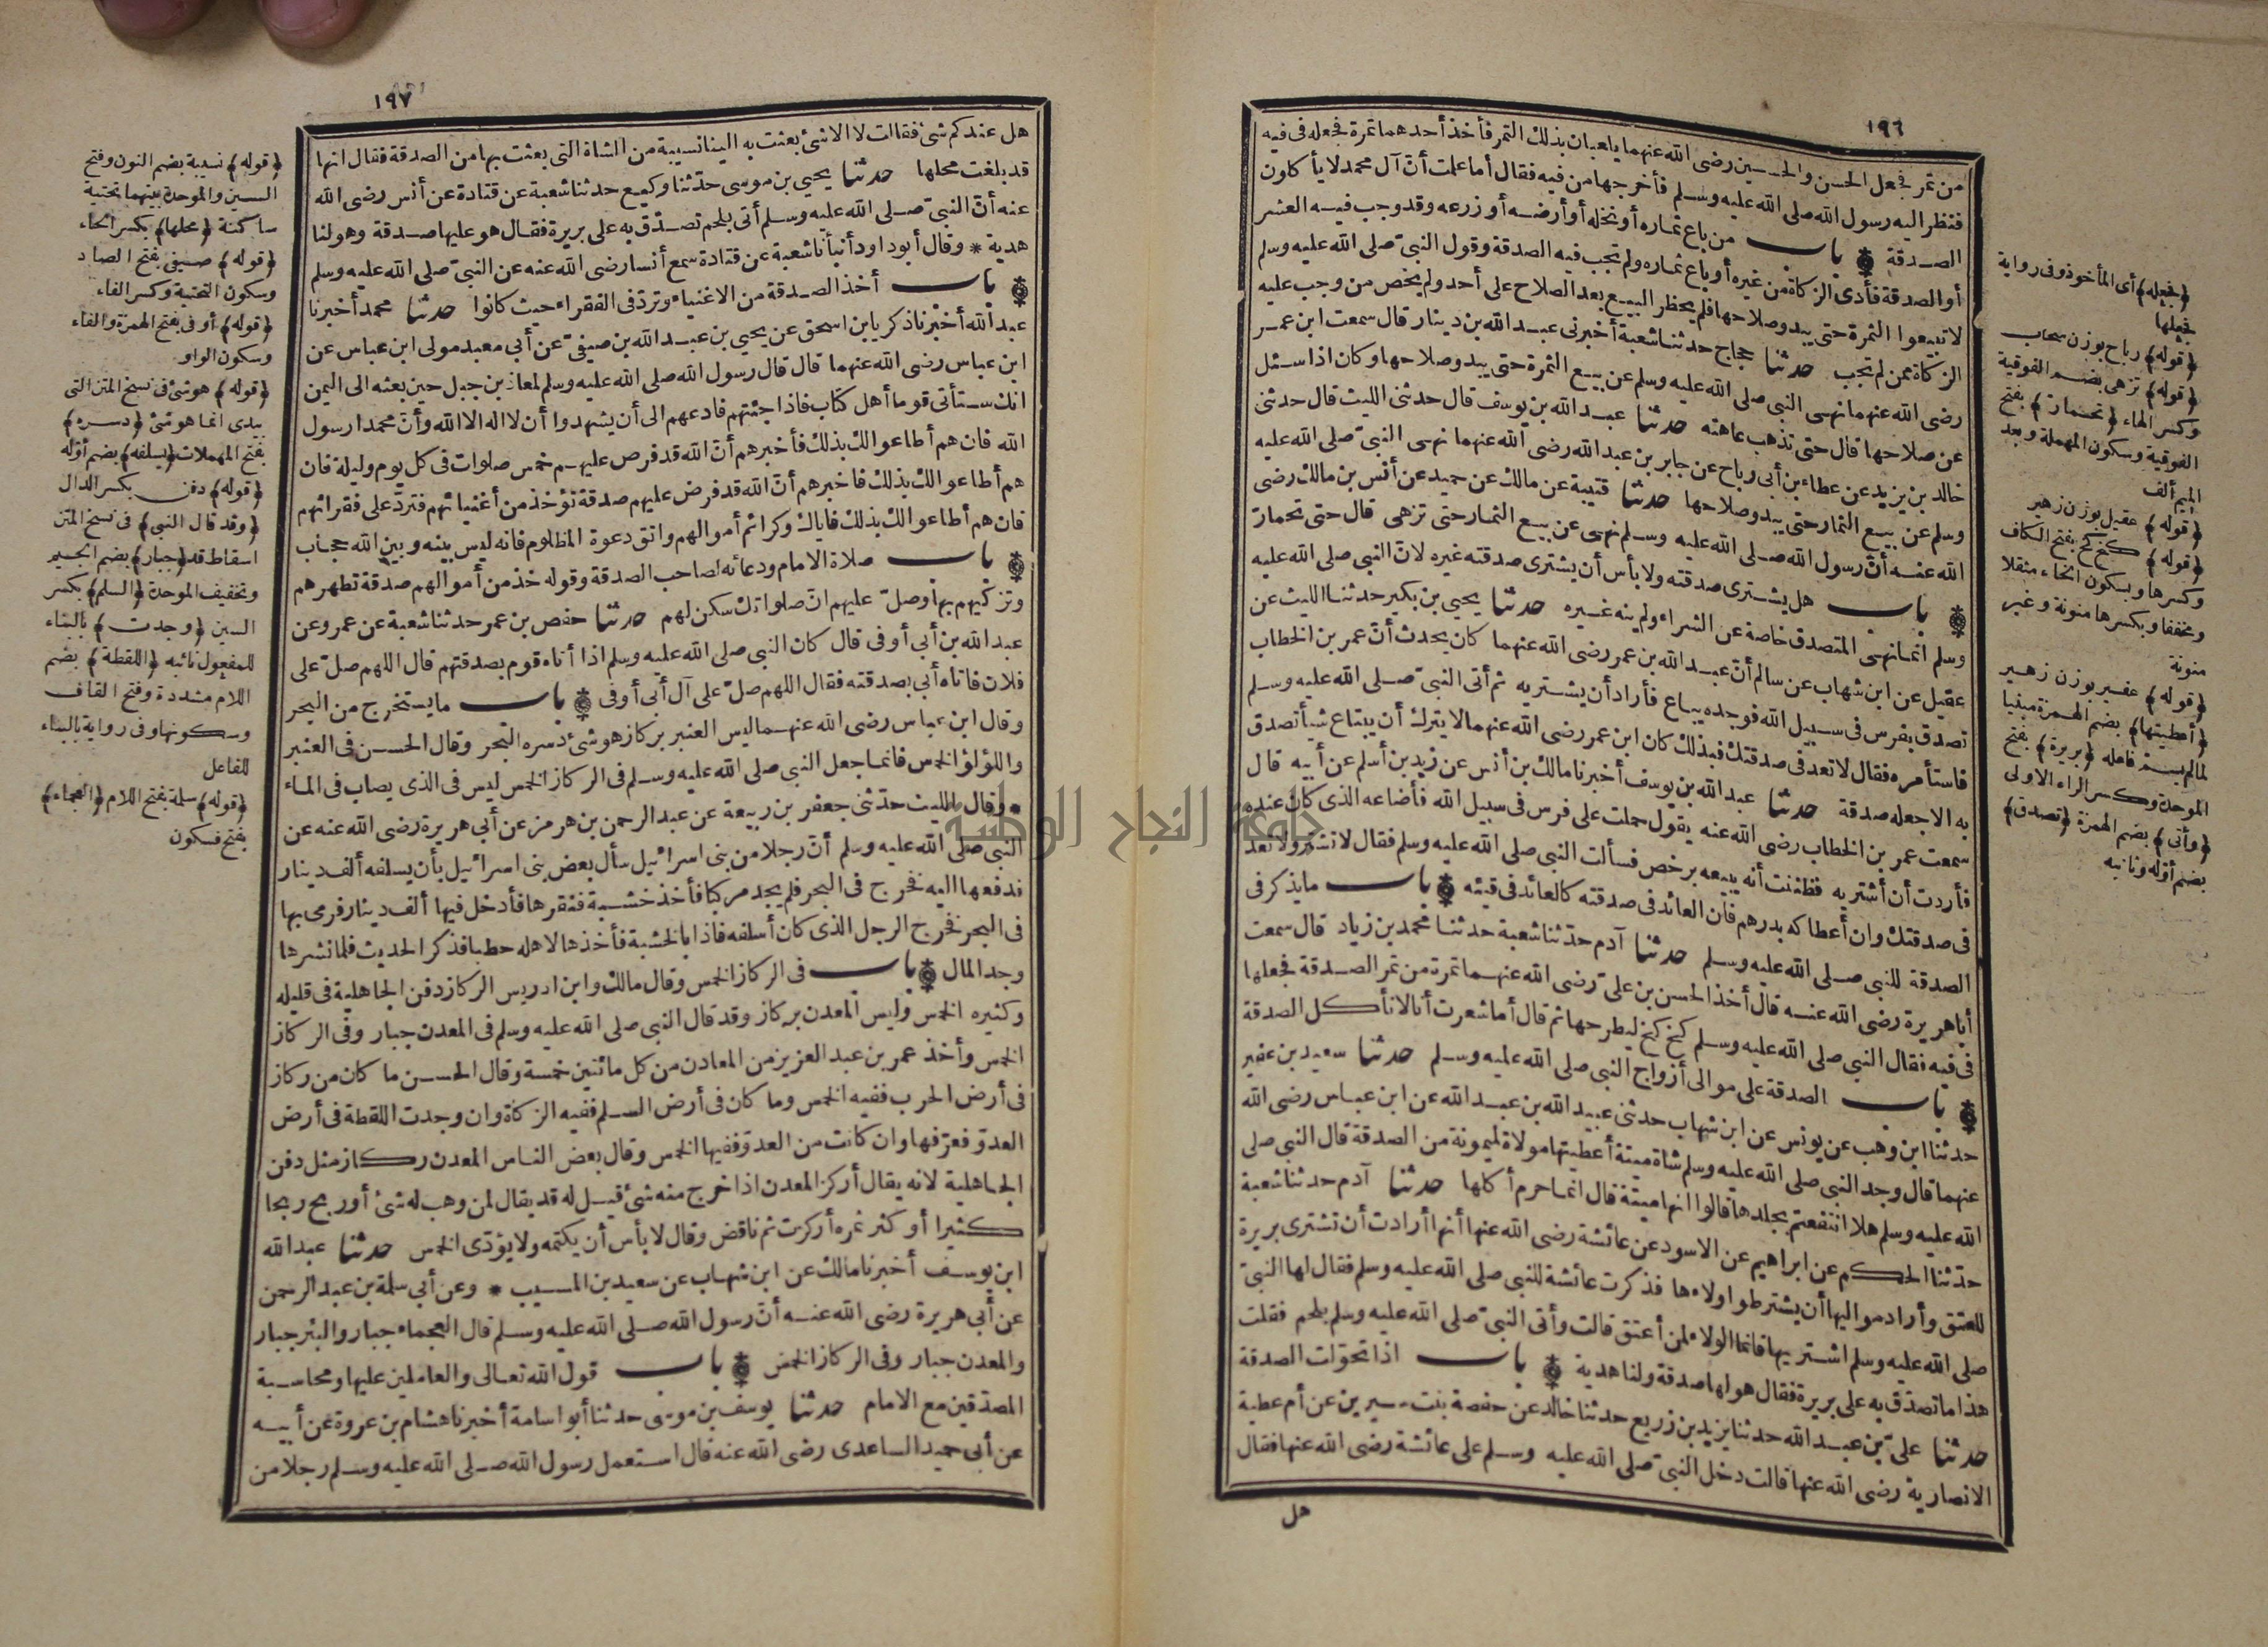 ١٩٦
من تمر فجعل الحسن والحسين رضى الله عنهما يلعبان بذلك التمر فأخذ أحدهما تمرة فجعله فى فيه
فنظر اليه رسول الله صلى الله عليه وسلم فأخرجها من فيه فقال أما علمت أنّ آل محمد لا يأكلون
الصدقة باب من باع ثماره أو نخله أو أرضه أو زرعه وقد وجب فيه العشر
أو الصدقة فأدى الزكاة من غيره أو باع ثماره ولم تجب فيه الصدقة وقول النبىّ صلى الله عليه وسلم
لا تبيعوا الثمرة حتى يبدو صلاحها فلم يحظر البيع بعد الصلاح على أحد ولم يخص من وجب عليه
الزكاة ممن لم تجب حدثنا حجاج حدثنا شعبة أخبرنى عبد الله بن دينار قال سمعت ابن عمر
رضى الله عنهما نهى النبى صلى الله عليه وسلم عن بيع الثمرة حتى يبدو صلاحها وكان اذا سئل
عن صلاحها قال حتى تذهب عاهته حدثنا عبد الله بن يوسف قال حدثنى الليث قال حدثنى
خالد بن يزيد عن عطاء بن أبى رباح عن جابر بن عبد الله رضى الله عنهما نهى النبىّ صلى الله عليه
وسلم عن بيع الثمار حتى يبدو صلاحها حدثنا قتيبة عن مالك عن حميد عن أنس بن مالك رضى
الله عنه أنّ رسول الله صلى الله عليه وسلم نهى عن بيع الثمار حتى تزهى قال حتى تحمارّ
باب هل يشترى صدقته ولا بأس أن يشترى صدقته غيره لانّ النبى صلى الله عليه
وسلم انما نهى المتصدق خاصة عن الشراء ولم ينه غيره حدثنا يحيى بن بكير حدثنا الليث عن
عقيل عن ابن شهاب عن سالم أنّ عبد الله بن عمر رضى الله عنهما كان يحدث أنّ عمر بن الخطاب
تصدق بفرس فى سبيل الله فوجده يباع فأراد أن يشتريه ثم أتى النبىّ صلى الله عليه وسلم
فاستأمره فقال لا تعد فى صدقتك فبذلك كان ابن عمر رضى الله عنهما لا يترك أن يبتاع شيأ تصدق
به الا جعله صدقة حدثنا عبد الله بن يوسف أخبرنا مالك بن أنس عن زيد بن أسلم عن أبيه قال
سمعت عمر بن الخطاب رضى الله عنه يقول حملت على فرس فى سبيل الله فأضاعه الذى كان عنده
فأردت أن أشتريه فظننت أنه يبيعه برخص فسألت النبى صلى الله عليه وسلم فقال لا تشتر ولا تعد
فى صدقتك وان أعطاكه بدرهم فان العائد فى صدقته كالعائد فى قيئه باب ما يذكر فى
الصدقة للنبى صلى الله عليه وسلم حدثنا آدم حدّثنا شعبة حدثنا محمد بن زياد قال سمعت
أبا هريرة رضى الله عنه قال أخذ الحسن بن علىّ رضى الله عنهما تمرة من تمر الصدقة فجعلها
فى فيه فقال النبى صلى الله عليه وسلم كخ كخ ليطرحها ثم قال أما شعرت أنا لا نأكل الصدقة
باب الصدقة على موالى أزواج النبى صلى الله عليه وسلم حدثنا سعيد بن عفير
حدثنا ابن وهب عن يونس عن ابن شهاب حدثنى عبيد الله بن عبد الله عن ابن عباس رضى الله
عنهما قال وجد النبى صلى الله عليه وسلم شاة ميتة أعطيتها مولاة لميمونة من الصدقة قال النبى صلى
الله عليه وسلم هلا انتفعتم بجلدها قالوا انها ميتة قال انما حرم أكلها حدثنا آدم حدثنا شعبة
حدّثنا الحكم عن ابراهيم عن الاسود عن عائشة رضى الله عنها أنها أرادت أن تشترى بريرة
للعتق وأراد مواليها أن يشترطوا ولاءها فذكرت عائشة للنبى صلى الله عليه وسلم فقال لها النبىّ
صلى الله عليه وسلم اشتريها فانما الولاء لمن أعتق قالت وأتى النبىّ صلى الله عليه وسلم بلحم فقلت
هذا ما تصدّق به على بريرة فقال هو لها صدقة ولنا هدية باب اذا تحوّلت الصدقة
حدثنا علىّ بن عبد الله حدثنا يزيد بن زريع حدثنا خالد عن حفصة بنت سيرين عن أم عطية
الانصارية رضى الله عنها قالت دخل النبىّ صلى الله عليه وسلم على عائشة رضى الله عنها فقال
هل
﴿فجعله﴾ أى المأخوذ وفى رواية
فجعلها
﴿قوله﴾ رباح بوزن سحاب
﴿قوله﴾ تزهى بضم الفوقية
وكسر الهاء ﴿تحمارّ﴾ بفتح
الفوقية وسكون المهملة وبعد
الميم ألف
﴿قوله﴾ عقيل بوزن زهير
﴿قوله﴾ كخ كخ بفتح الكاف
وكسرها وبسكون الخاء مثقلا
ومخففا وبكسرها منونة وغير
منونة
﴿قوله﴾ عفير بوزن زهير
﴿أعطيتها﴾ بضم الهمزة مبنيا
لما لم يسمّ فاعله ﴿بريرة﴾ بفتح
الموحدة وكسر الراء الاولى
﴿وأتى﴾ بضم الهمزة ﴿تصدق﴾
بضم أوّله وثانيه
١٩٧
هل عندكم شئ فقالت لا الا شئ بعثت به الينا نسيبة من الشاة التى بعثت بها من الصدقة فقال انها
قد بلغت محلها حدثنا يحيى بن موسى حدّثنا وكيع حدثنا شعبة عن قتادة عن أنس رضى الله
عنه أنّ النبىّ صلى الله عليه وسلم أتى بلحم تصدّق به على بريرة فقال هو عليها صدقة وهو لنا
هدية * وقال أبو داود أنبأنا شعبة عن قتادة سمع أنسا رضى الله عنه عن النبىّ صلى الله عليه وسلم
باب أخذ الصدقة من الاغنياء وتردّ فى الفقراء حيث كانوا حدثنا محمد أخبرنا
عبد الله أخبرنا زكريا بن اسحق عن يحيى بن عبد الله بن صيفىّ عن أبى معبد مولى ابن عباس عن
ابن عباس رضى الله عنهما قال قال رسول الله صلى الله عليه وسلم لمعاذ بن جبل حين بعثه الى اليمن
انك ستأتى قوما أهل كتاب فاذا جئتهم فادعهم الى أن يشهدوا أن لا اله الا الله وأنّ محمدا رسول
الله فان هم أطاعوا لك بذلك فأخبرهم أنّ الله قد فرض عليهم خمس صلوات فى كل يوم وليلة فان
هم أطاعوا لك بذلك فاخبرهم أنّ الله قد فرض عليهم صدقة تؤخذ من أغنيائهم فتردّ على فقرائهم
فان هم أطاعوا لك بذلك فاياك وكرائم أموالهم واتق دعوة المظلوم فانه ليس بينه وبين الله حجاب
باب صلاة الامام ودعائه لصاحب الصدقة وقوله خذ من أموالهم صدقة تطهرهم
وتزكيهم بها وصلّ عليهم انّ صلواتك سكن لهم حدثنا حفص بن عمر حدثنا شعبة عن عمرو عن
عبد الله بن أبى أوفى قال كان النبى صلى الله عليه وسلم اذا أتاه قوم بصدقتهم قال اللهم صلّ على
فلان فاتاه أبى بصدقته فقال اللهم صلّ على آل أبى أوفى باب ما يستخرج من البحر
وقال ابن عباس رضى الله عنهما ليس العنبر بركاز هو شئ دسره البحر وقال الحسن فى العنبر
واللؤلؤ الخمس فانما جعل النبى صلى الله عليه وسلم فى الركاز الخمس ليس فى الذى يصاب فى الماء
* وقال الليث حدّثنى جعفر بن ربيعة عن عبد الرحمن بن هرمز عن أبى هريرة رضى الله عنه عن
النبى صلى الله عليه وسلم أنّ رجلا من بنى اسرائيل سأل بعض بنى اسرائيل بأن يسلفه ألف دينار
فدفعها اليه فخرج فى البحر فلم يجد مركبا فأخذ خشبة فنقرها فأدخل فيها ألف دينار فرمى بها
فى البحر فخرج الرجل الذى كان أسلفه فاذا بالخشبة فأخذها لاهله حطبا فذكر الحديث فلما نشرها
وجد المال باب فى الركاز الخمس وقال مالك وابن ادريس الركاز دفن الجاهلية فى قليله
وكثيره الخمس وليس المعدن بركاز وقد قال النبى صلى الله عليه وسلم فى المعدن جبار وفى الركاز
الخمس وأخذ عمر بن عبد العزيز من المعادن من كل مائتين خمسة وقال الحسن ما كان من ركاز
فى أرض الحرب ففيه الخمس وما كان فى أرض السلم ففيه الزكاة وان وجدت اللقطة فى أرض
العدوّ فعرّفها وان كانت من العدوّ ففيها الخمس وقال بعض الناس المعدن ركاز مثل دفن
الجاهلية لانه يقال أركز المعدن اذا خرج منه شئ قيل له قد يقال لمن وهب له شئ أو ربح ربحا
كثيرا أو كثر ثمره أركزت ثم ناقض وقال لا بأس أن يكتمه ولا يؤدّى الخمس حدثنا عبد الله
ابن يوسف أخبرنا مالك عن ابن شهاب عن سعيد بن المسيب * وعن أبى سلمة بن عبد الرحمن
عن أبى هريرة رضى الله عنه أنّ رسول الله صلى الله عليه وسلم قال العجماء جبار والبئر جبار
والمعدن جبار وفى الركاز الخمس باب قول الله تعالى والعاملين عليها ومحاسبة
المصدّقين مع الامام حدثنا يوسف بن موسى حدثنا أبو اسامة أخبرنا هشام بن عروة عن أبيه
عن أبى حميد الساعدى رضى الله عنه قال استعمل رسول الله صلى الله عليه وسلم رجلا من
﴿قوله﴾ نسيبة بضم النون وفتح
السين والموحدة بينهما تحتية
ساكنة ﴿محلها﴾ بكسر الحاء
﴿قوله﴾ صيفى بفتح الصاد
وسكون التحتية وكسر الفاء
﴿قوله﴾ أوفى بفتح الهمزة والفاء
وسكون الواو
﴿قوله﴾ هو شئ فى نسخ المتن التى
بيدى انما هو شئ ﴿دسره﴾
بفتح المهملات ﴿يسلفه﴾ بضم أوّله
﴿قوله﴾ دفن بكسر الدال
﴿وقد قال النبى﴾ فى نسخ المتن
اسقاط قد ﴿جبار﴾ بضم الجيم
وتخفيف الموحدة ﴿السلم﴾ بكسر
السين ﴿وجدت﴾ بالبناء
للمفعول نائبه ﴿اللقطة﴾ بضم
اللام مشددة وفتح القاف
وسكونها وفى رواية بالبناء
للفاعل
﴿قوله﴾ سلمة بفتح اللام ﴿العجماء﴾
بفتح فسكون
جامعة النجاح الوطنية